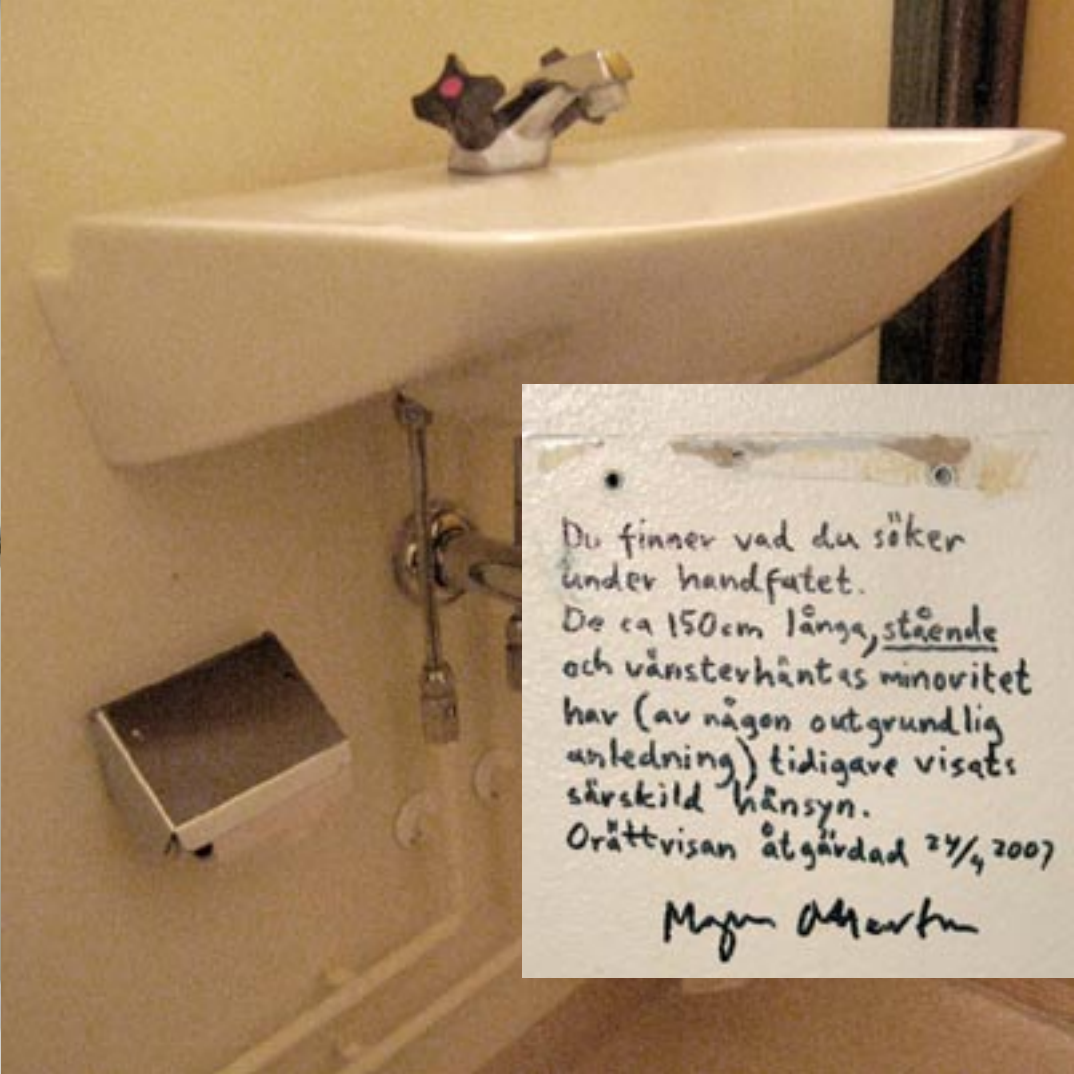 Du finner vad du söker
under handfatet.
De ca 150cm långa, stående
och vänsterhäntas minoritet
har (av någon outgrundlig
anledning) tidigare visats
särskild hänsyn.
Orättvisan åtgärdad 24/4 2007